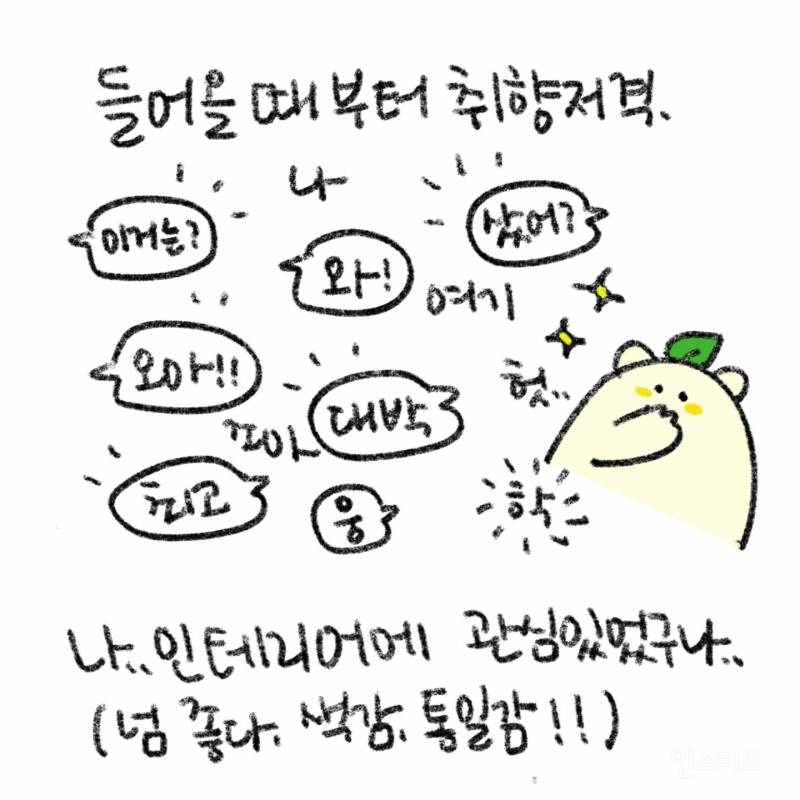 들어올 때부터 취향저격.
나
이거는?
샀어?
와!
여기
오아!!
헛..
대박
꼬아
최고
웅
학
나..인테리어에 관심있었구나..
(넘 좋다. 색감. 통일감!!)
인스티즈